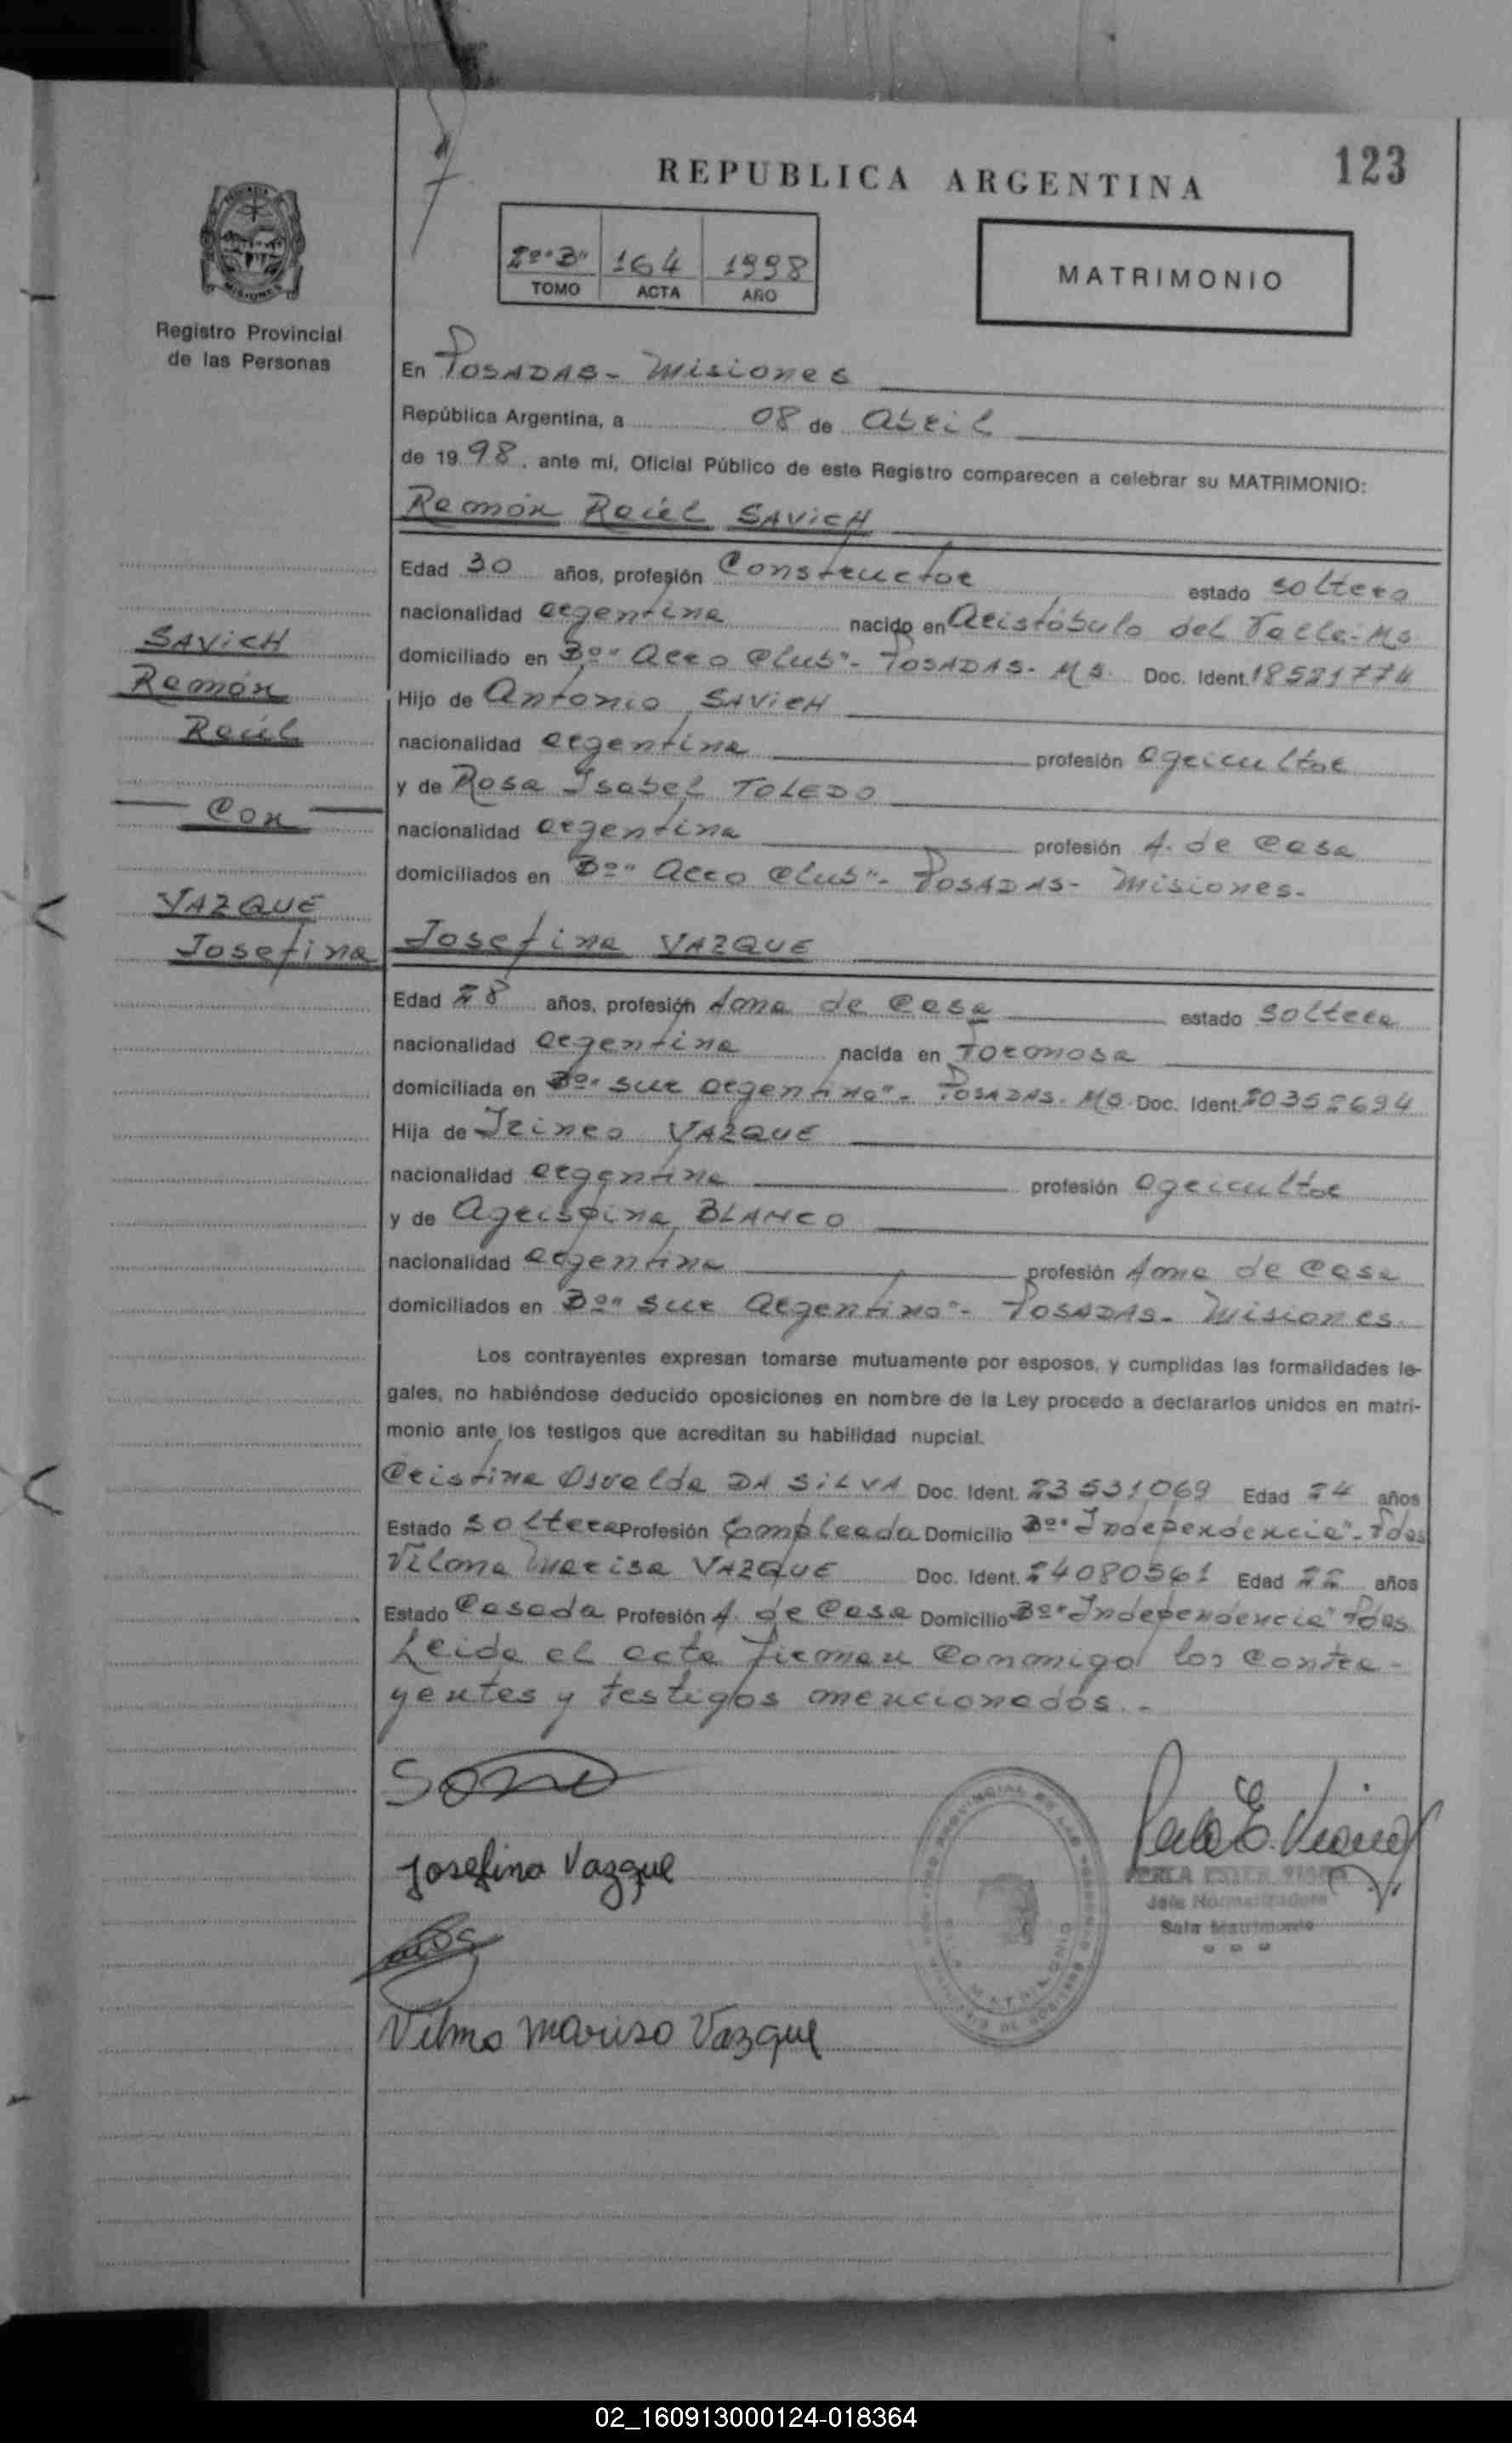 123
REPUBLICA ARGENTINA
2º"B" 164 1998
TOMO ACTA AÑO
MATRIMONIO
Registro Provincial
de las Personas
SAVICH
Ramón
Raúl
Con
VAZQUE
Josefina
En POSADAS - Misiones
República Argentina, a 08 de Abril
de 1998, ante mí, Oficial Público de este Registro comparecen a celebrar su MATRIMONIO:
Ramón Raúl SAVICH
Edad 30 años, profesión Constructor estado soltero
nacionalidad argentina nacido en Aristóbulo del Valle - Ms
domiciliado en Bº" Aero Club" - POSADAS - Ms. Doc. Ident. 18521774
Hijo de Antonio SAVICH
nacionalidad argentina profesión agricultor
y de Rosa Isabel TOLEDO
nacionalidad argentina profesión A. de Casa
domiciliados en Bº" Aero Club" - POSADAS - Misiones.
Josefina VAZQUE
Edad 28 años, profesión Ama de Casa estado soltera
nacionalidad argentina nacida en
domiciliada en Bº" Sur Argentino" - POSADAS - Ms. Doc. Ident. 20352694
Hija de Irineo VAZQUE
nacionalidad argentina profesión agricultor
y de Agrispina BLANCO
nacionalidad argentina profesión Ama de Casa
domiciliados en Bº" Sur Argentino" - POSADAS - Misiones.
Los contrayentes expresan tomarse mutuamente por esposos, y cumplidas las formalidades le-
gales, no habiéndose deducido oposiciones en nombre de la Ley procedo a declararlos unidos en matri-
monio ante los testigos que acreditan su habilidad nupcial.
Cristina Osvalda DA SILVA Doc. Ident. 23531069 Edad 24 años
Estado soltera Profesión Empleada Domicilio Bº" Independencia" - Pdas
Vilma Marisa VAZQUE Doc. Ident. 24080561 Edad 22 años
Estado Casada Profesión A. de Casa Domicilio Bº" Independencia" Pdas
Leída el acta firman conmigo los contra-
yentes y testigos mencionados. -
Josefina Vazque
Vilma Marisa Vazque
PERLA ESTER
Sala Matrimonio
02_160913000124-018364